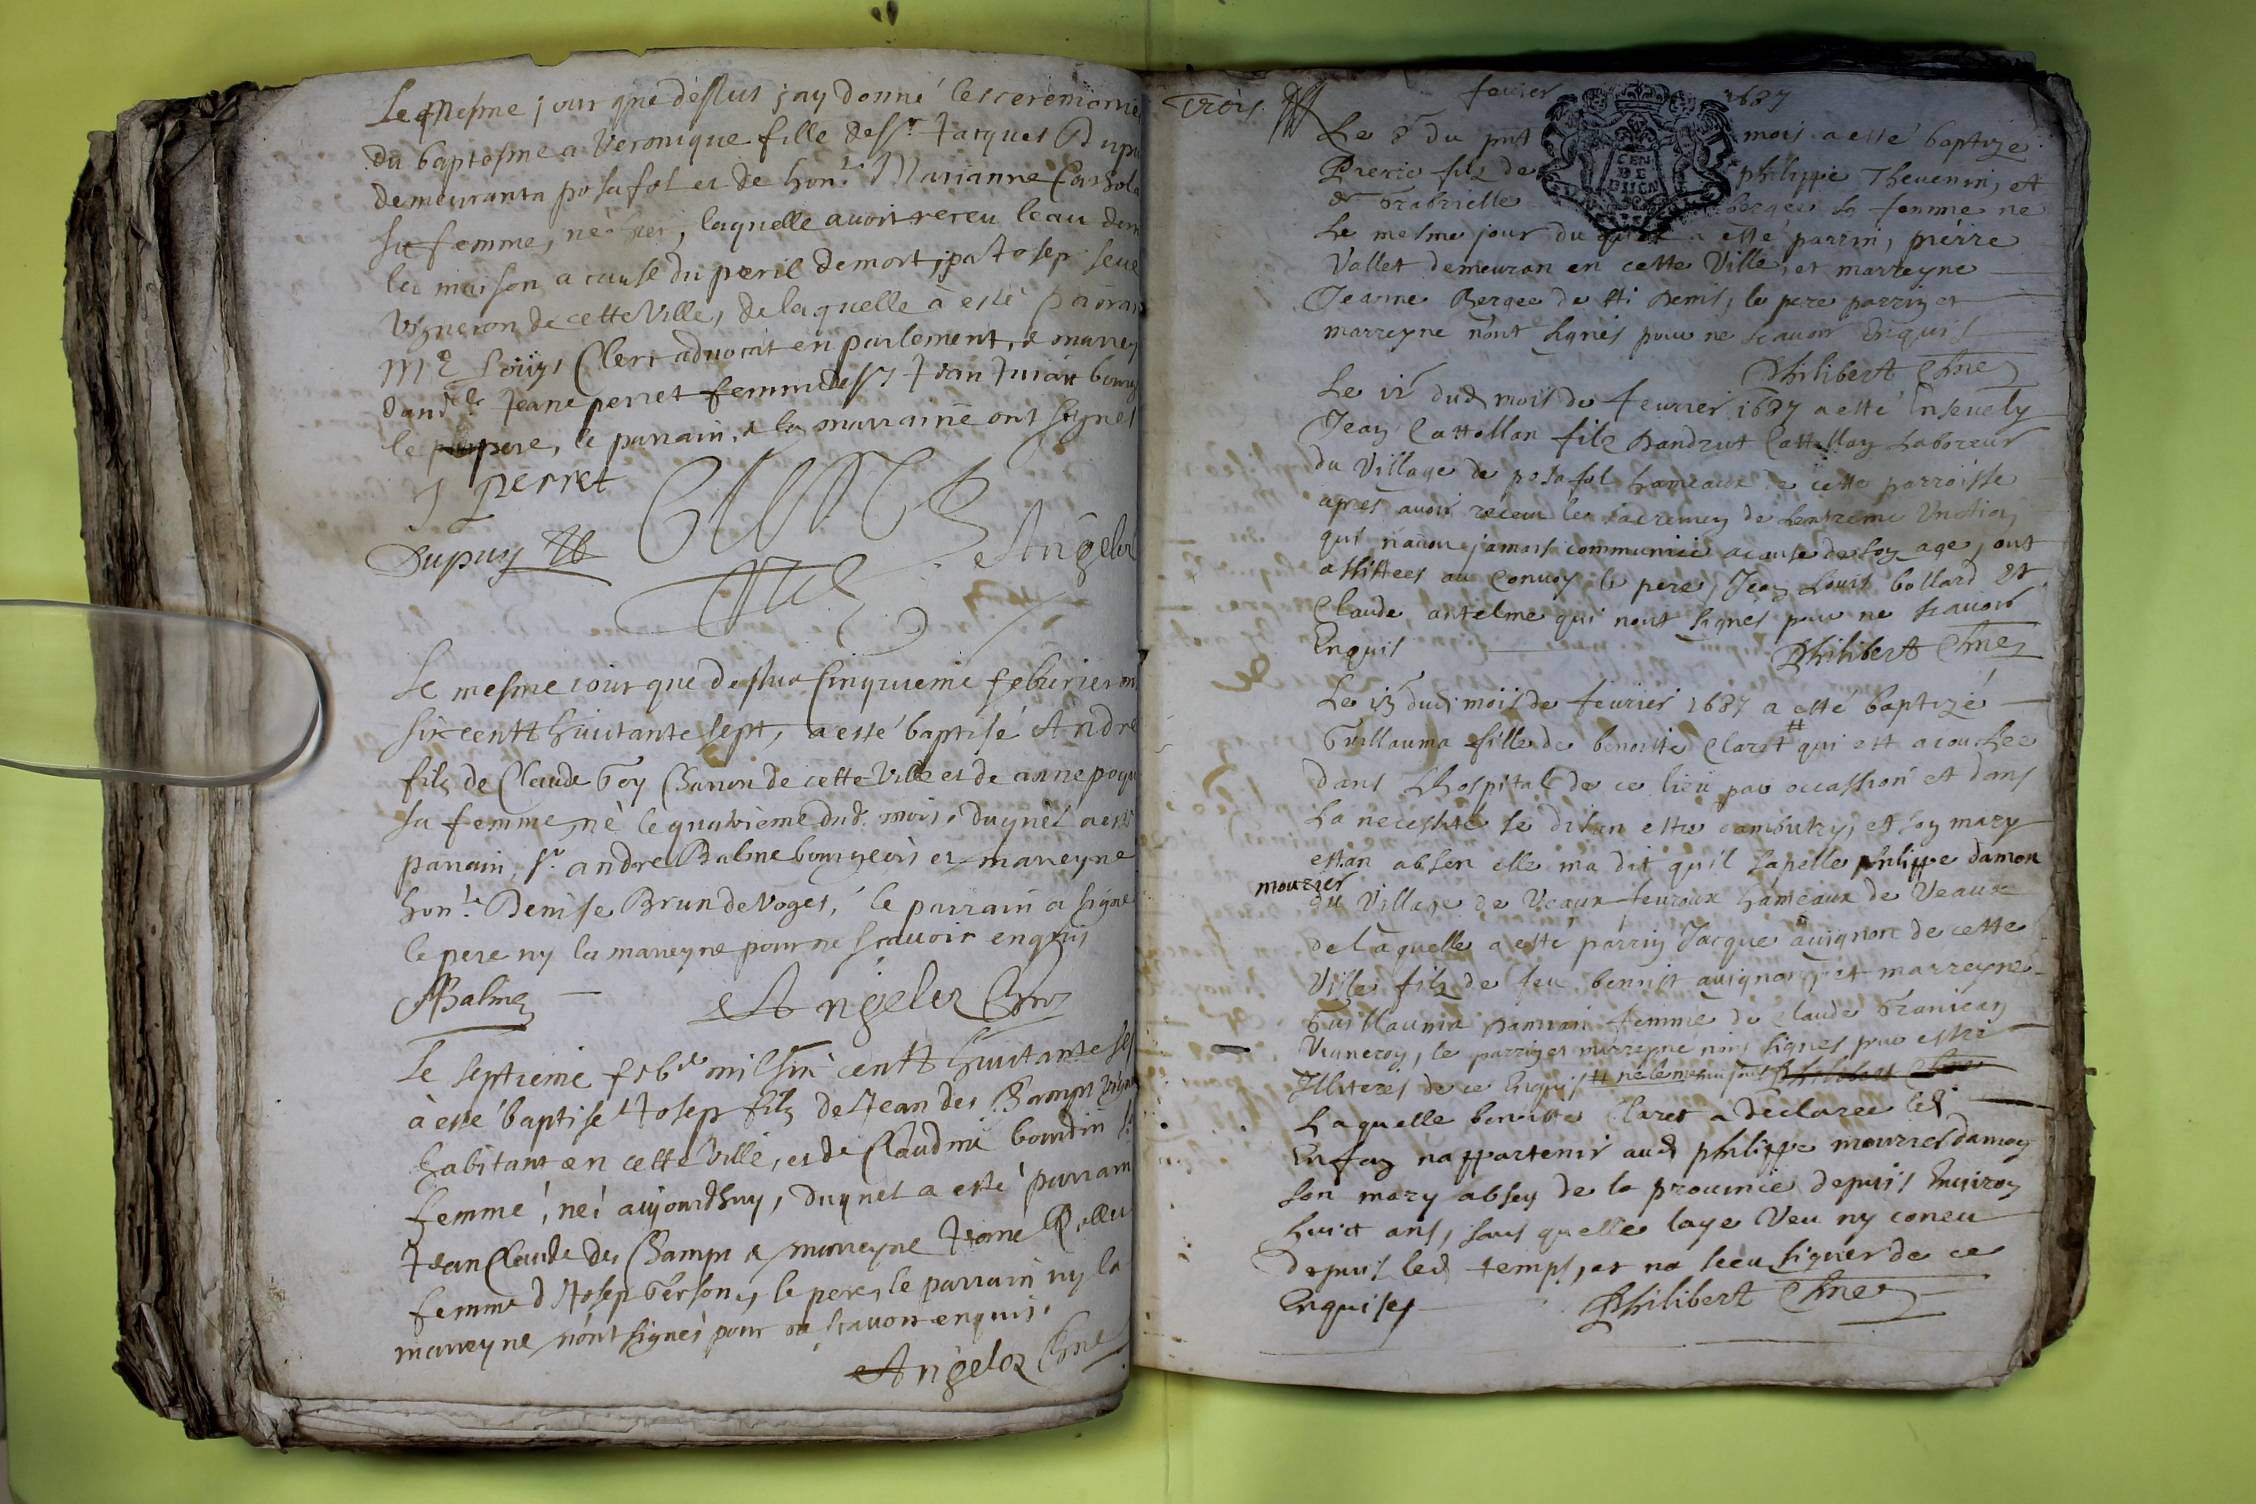 Le mesme jour que dessus jay donné les ceremonie
du baptesme a Veronique fille de Sr Jacques Dupu
demeurant a posafol et de honle Marianne
sa femme, née hier, laquelle avoit receu leau dan
la maison a cause du peril de mort, par Joseph
vigneron de cette Ville, de laquelle à esté parrai
Me Loüys Clerc advocat en parlement, & marrey
dandlle Jeane perret femme de Sr Jean bourg
le pere, le parrain, & la marraine ont signes
J perret
Dupuy
Angelot
Le mesme iour que dessus Cinquieme febvrier
six centt huictante sept, a esté baptisé André
fils de Claude Goy de cette Ville et de anne
sa femme, né le quatrieme dud. mois, duquel a esté
parrain, Sr. andre Balme bourgeois et marreyne
honle. Denise Brun de Voges, le parrain a signé
le pere ny la marreyne pour ne sçavoir enquis
ABalme
Angelot Chne
Le septieme febr mil six centt huictante sep
à esté baptisé Joseph fils de Jean des Champs
habitant en cette Ville, et de Claudine bourdin sa
femme, né aujourdhuy, duquel a esté parrain
Jean Claude des Champs & marreyne
femme d Joseph Gerson, le pere, le parrain ny la
marreyne nont signes pour ne sçavoir enquis.
Angelot Chne
Trois.
fevrier 1687
Le 8 du pnt mois a esté baptizé
Pierre filz de philippe Thevenin, et
de Gabrielle bergee sa femme né
Le mesme jour duquel a esté parrin, pierre
Vallet demeuran en cette Ville, et marreyne
Jeanne Bergee de St Denis, le pere parrin et
marreyne nont signés pour ne scavoir Enquis
Philibert Chne
Le 12 dud mois de fevrier 1687 a esté Ensevely
Jean Cattollan filz Dandrut Cattellan Laboreur
du Village de posafol hameaux de cette parroisse
apres avoir receu les sacremen de Lextreme Unction,
qui navoit jamais communié a cause de son age, ont
assistees au Convoy le pere, Jean Louis bollard et
Claude antelme qui nont signés pour ne scavoir
Enquis
Philibert Chne
Le 13 dud mois de fevrier 1687 a esté baptizé
Guillauma fille de benoitte Claret # qui est acouchee
dans Lhospital de ce lieu par occassion et dans
La necessité se disan estre dambutrix, et son mary
estan absen elle ma dit quil sapelle philippe damon
mourier
du Village de Veaux fevroux hameaux de Veaux
de laquelle a esté parrin Jacque avignon de cette
Ville filz de feu benoist avignon et marreyne
Guillauma femme de Claude
Vigneron, le parrin et marreyne nont signes pour estre
Illiteres de ce Enquis # Philibert Chne
Laquelle benoitte Claret a declaree led
Enfan nappartenir aud philippe mourier damon
son mary absen de la province depuis Environ
huict ans, sans quelle laye Veu ny coneu
depuis led temps, et na sceu signer de ce
Enquise
Philibert Chne